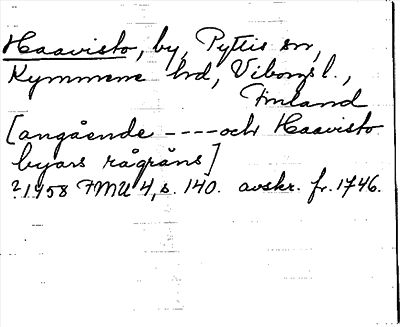 Haavisto, by, Pyttis sn,
Kymmene hd, Viborgs l.,
Finland
[angående ---- och Haavisto
byars rågräns]
?1458 FMU 4, s. 140. avskr. fr. 1746.